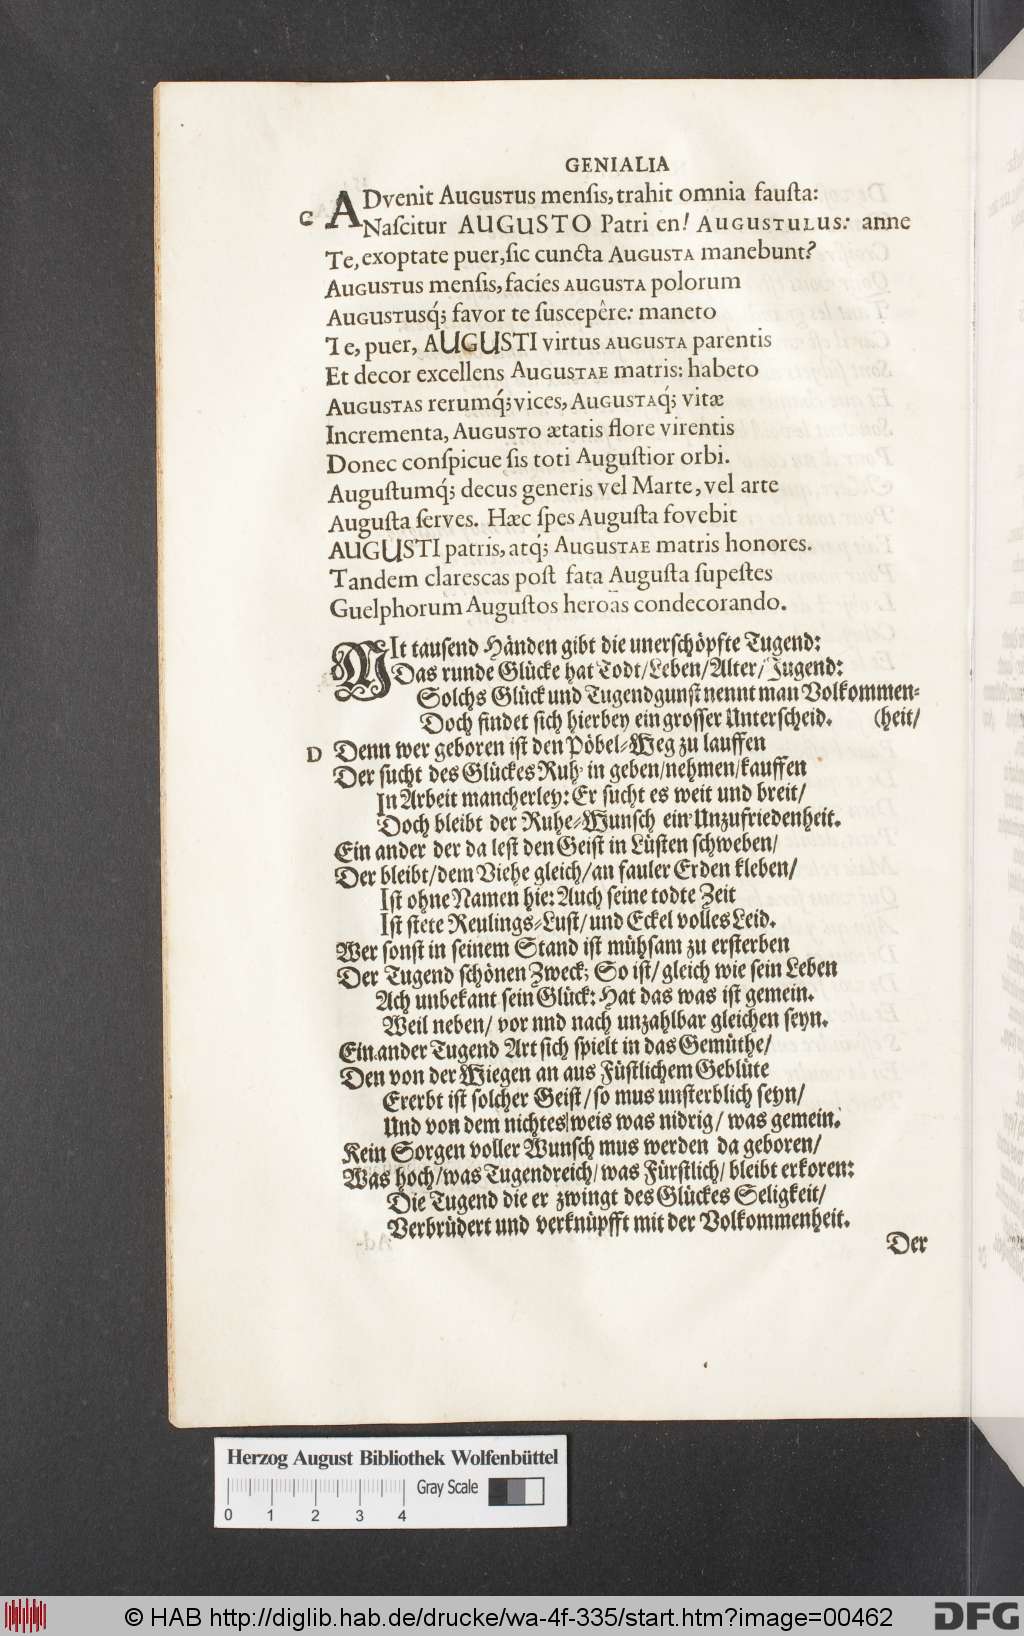 GENIALIA
C ADvenit AUGUSTUS menſis, trahit omnia fauſta:
Naſcitur AUGUSTO Patri en! AUGUSTULUS: anne
Te, exoptate puer, ſic cuncta AUGUSTA manebunt?
AUGUSTUS menſis, facies AUGUSTA polorum
AUGUSTUSq́; favor te ſuscepêre: maneto
Te, puer, AUGUSTI virtus AUGUSTA parentis
Et decor excellens AUGUSTAE matris: habeto
AUGUSTAS rerumq́; vices, AUGUSTAq́; vitæ
Incrementa, AUGUSTO ætatis flore virentis
Donec conſpicue ſis toti Auguſtior orbi.
Auguſtumq́; decus generis vel Marte, vel arte
Auguſta ſerves. Hæc ſpes Auguſta fovebit
AUGUSTI patris, atq́; AUGUSTAE matris honores.
Tandem clareſcas poſt fata Auguſta ſupeſtes
Guelphorum Auguſtos heroäs condecorando.
MIt tauſend Händen gibt die unerſchöpfte Tugend:
Das runde Glücke hat Todt/Leben/Alter/Jugend:
Solchs Glück und Tugendgunſt nennt man Volkommen=
Doch findet ſich hierbey ein groſſer Unterſcheid. (heit/
D Denn wer geboren iſt den Pöbel=Weg zu lauffen
Der ſucht des Glückes Ruh in geben/nehmen/kauffen
In Arbeit mancherley: Er ſucht es weit und breit/
Doch bleibt der Ruhe=Wunſch ein Unzufriedenheit.
Ein ander der da leſt den Geiſt in Lüſten ſchweben/
Der bleibt/dem Viehe gleich/an fauler Erden kleben/
Iſt ohne Namen hie: Auch ſeine todte Zeit
Iſt ſtete Reulings=Luſt/und Eckel volles Leid.
Wer ſonſt in ſeinem Stand iſt mühſam zu erſterben
Der Tugend ſchönen Zweck; So iſt/gleich wie ſein Leben
Ach unbekant ſein Glück: Hat das was iſt gemein.
Weil neben/ vor nnd nach unzahlbar gleichen ſeyn.
Ein ander Tugend Art ſich ſpielt in das Gemüthe/
Den von der Wiegen an aus Füſtlichem Geblüte
Ererbt iſt ſolcher Geiſt/ſo mus unſterblich ſeyn/
Und von dem nichtes weis was nidrig/ was gemein.
Kein Sorgen voller Wunſch mus werden da geboren/
Was hoch/was Tugendreich/was Fürſtlich/ bleibt erkoren:
Die Tugend die er zwingt des Glückes Seligkeit/
Verbrüdert und verknüpfft mit der Volkommenheit.
Der
Herzog August Bibliothek Wolfenbüttel
Gray Scale
0 1 2 3 4
© HAB http://diglib.hab.de/drucke/wa-4f-335/start.htm?image=00462
DFG